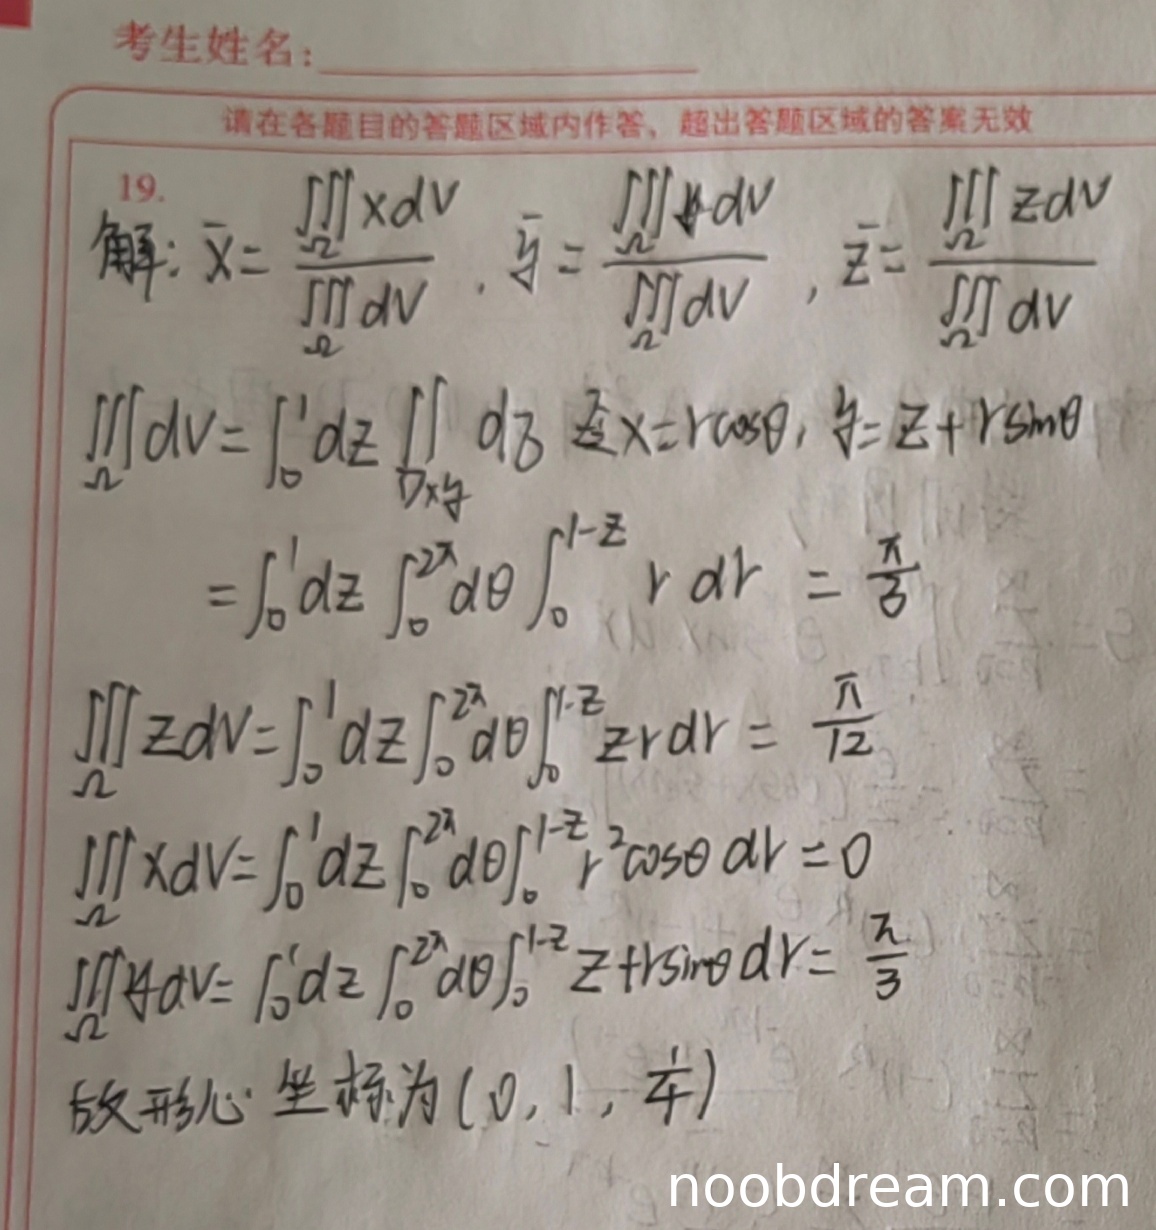 考生姓名:
请在各题目的答题区域内作答，超出答题区域的答案无效
19.
解: x̄ = ∭_Ω x dV / ∭_Ω dV , ȳ = ∭_Ω y dV / ∭_Ω dV , z̄ = ∭_Ω z dV / ∭_Ω dV
∭_Ω dV = ∫_0^1 dz ∬_{Dxy} dδ 令x=rcosθ, y=z+rsinθ
= ∫_0^1 dz ∫_0^{2π} dθ ∫_0^{1-z} r dr = π/3
∭_Ω z dV = ∫_0^1 dz ∫_0^{2π} dθ ∫_0^{1-z} z r dr = π/12
∭_Ω x dV = ∫_0^1 dz ∫_0^{2π} dθ ∫_0^{1-z} r² cosθ dr = 0
∭_Ω y dV = ∫_0^1 dz ∫_0^{2π} dθ ∫_0^{1-z} z+rsinθ dr = π/3
故形心坐标为(0, 1, 1/4)
noobdream.com